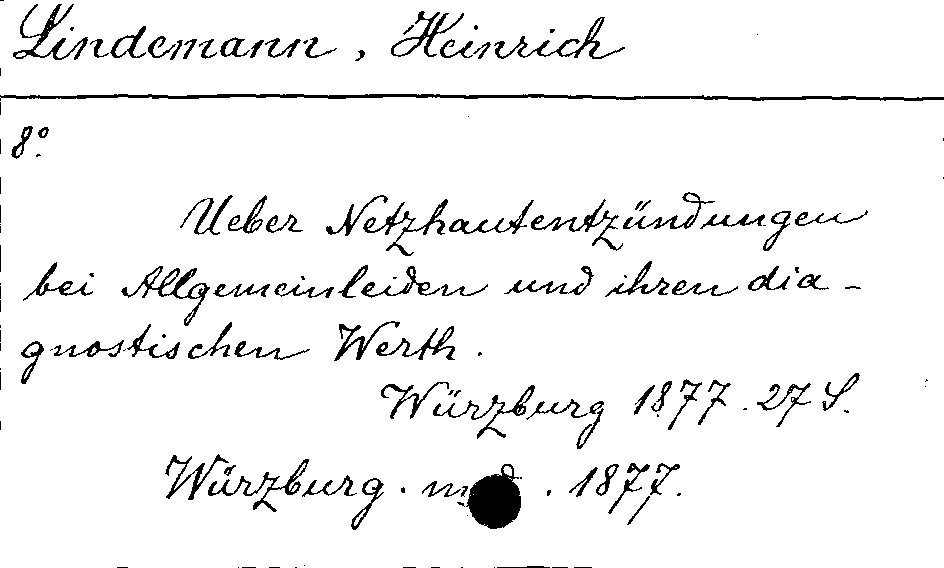 Lindemann, Heinrich
8°.
Ueber Netzhautentzündungen
bei Allgemeinleiden und ihren dia-
gnostischen Werth.
Würzburg 1877. 27 S.
Würzburg. . 1877.